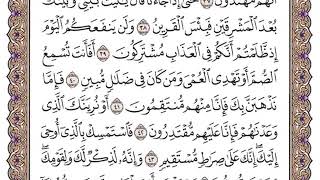 أَنَّهُم مُّهْتَدُونَ ٣٧ حَتَّىٰٓ إِذَا جَآءَنَا قَالَ يَٰلَيْتَ بَيْنِي وَبَيْنَكَ
بُعْدَ ٱلْمَشْرِقَيْنِ فَبِئْسَ ٱلْقَرِينُ ٣٨ وَلَن يَنفَعَكُمُ ٱلْيَوْمَ
إِذ ظَّلَمْتُمْ أَنَّكُمْ فِي ٱلْعَذَابِ مُشْتَرِكُونَ ٣٩ أَفَأَنتَ تُسْمِعُ
ٱلصُّمَّ أَوْ تَهْدِي ٱلْعُمْيَ وَمَن كَانَ فِي ضَلَٰلٍ مُّبِينٍ ٤٠ فَإِمَّا
نَذْهَبَنَّ بِكَ فَإِنَّا مِنْهُم مُّنتَقِمُونَ ٤١ أَوْ نُرِيَنَّكَ ٱلَّذِي
وَعَدْنَٰهُمْ فَإِنَّا عَلَيْهِم مُّقْتَدِرُونَ ٤٢ فَٱسْتَمْسِكْ بِٱلَّذِيٓ أُوحِيَ
إِلَيْكَ إِنَّكَ عَلَىٰ صِرَٰطٍ مُّسْتَقِيمٍ ٤٣ وَإِنَّهُۥ لَذِكْرٌ لَّكَ وَلِقَوْمِكَ